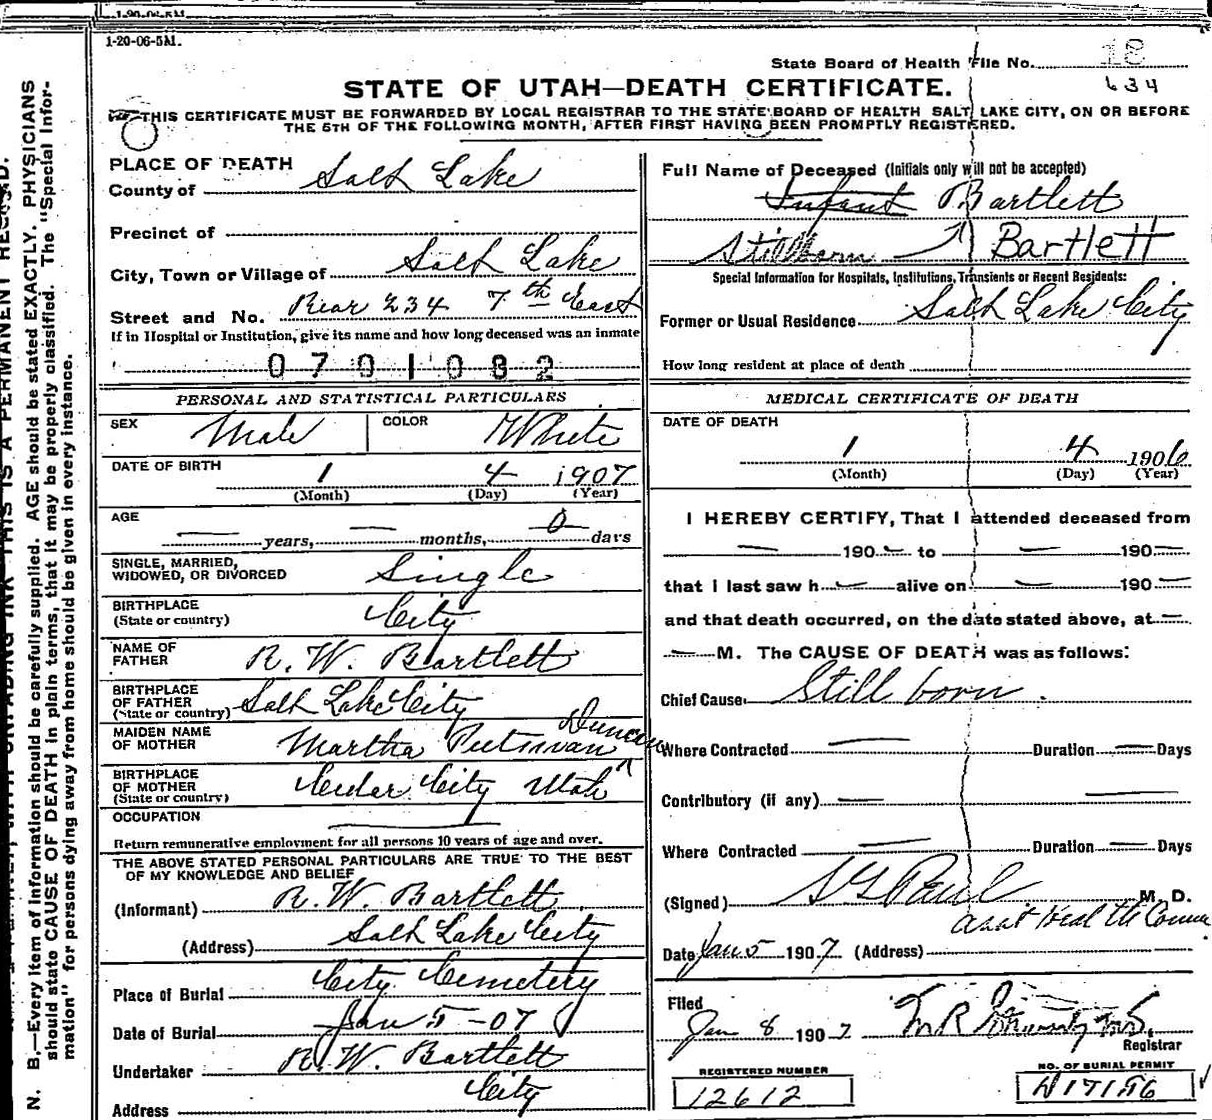 1-20-06-5M.
State Board of Health File No. 18
634
STATE OF UTAH—DEATH CERTIFICATE.
THIS CERTIFICATE MUST BE FORWARDED BY LOCAL REGISTRAR TO THE STATE BOARD OF HEALTH SALT LAKE CITY, ON OR BEFORE
THE 5TH OF THE FOLLOWING MONTH, AFTER FIRST HAVING BEEN PROMPTLY REGISTERED.
PLACE OF DEATH
County of Salt Lake
Precinct of
City, Town or Village of Salt Lake
Street and No. Rear 234 7th East
If in Hospital or Institution, give its name and how long deceased was an inmate
0701082
Full Name of Deceased (Initials only will not be accepted)
Infant Bartlett
Stillborn Bartlett
Special Information for Hospitals, Institutions, Transients or Recent Residents:
Former or Usual Residence Salt Lake City
How long resident at place of death
PERSONAL AND STATISTICAL PARTICULARS
SEX Male COLOR White
DATE OF BIRTH 1 4 1907
(Month) (Day) (Year)
AGE
— years, — months, 0 days
SINGLE, MARRIED,
WIDOWED, OR DIVORCED Single
BIRTHPLACE
(State or country) City
NAME OF
FATHER R. W. Bartlett
BIRTHPLACE
OF FATHER
(State or country) Salt Lake City
MAIDEN NAME
OF MOTHER Martha Duncan
BIRTHPLACE
OF MOTHER
(State or country) Cedar City Utah
OCCUPATION
Return remunerative employment for all persons 10 years of age and over.
THE ABOVE STATED PERSONAL PARTICULARS ARE TRUE TO THE BEST
OF MY KNOWLEDGE AND BELIEF
(Informant) R. W. Bartlett
(Address) Salt Lake City
Place of Burial City Cemetery
Date of Burial Jan 5-07
Undertaker R. W. Bartlett
Address City
MEDICAL CERTIFICATE OF DEATH
DATE OF DEATH
1 4 1906
(Month) (Day) (Year)
I HEREBY CERTIFY, That I attended deceased from
— 190— to — 190—
that I last saw h— alive on — 190—
and that death occurred, on the date stated above, at —
— M. The CAUSE OF DEATH was as follows:
Chief Cause Still born.
Where Contracted — Duration — Days
Contributory (if any) —
Where Contracted — Duration — Days
(Signed) Paul M. D.
Date Jan 5 1907 (Address) Asst Health Comm
Filed
Jan 8 1907
Registrar
REGISTERED NUMBER
12612
NO. OF BURIAL PERMIT
N. B.—Every item of information should be carefully supplied. AGE should be stated EXACTLY. PHYSICIANS
should state CAUSE OF DEATH in plain terms, that it may be properly classified. The "Special Infor-
mation" for persons dying away from home should be given in every instance.